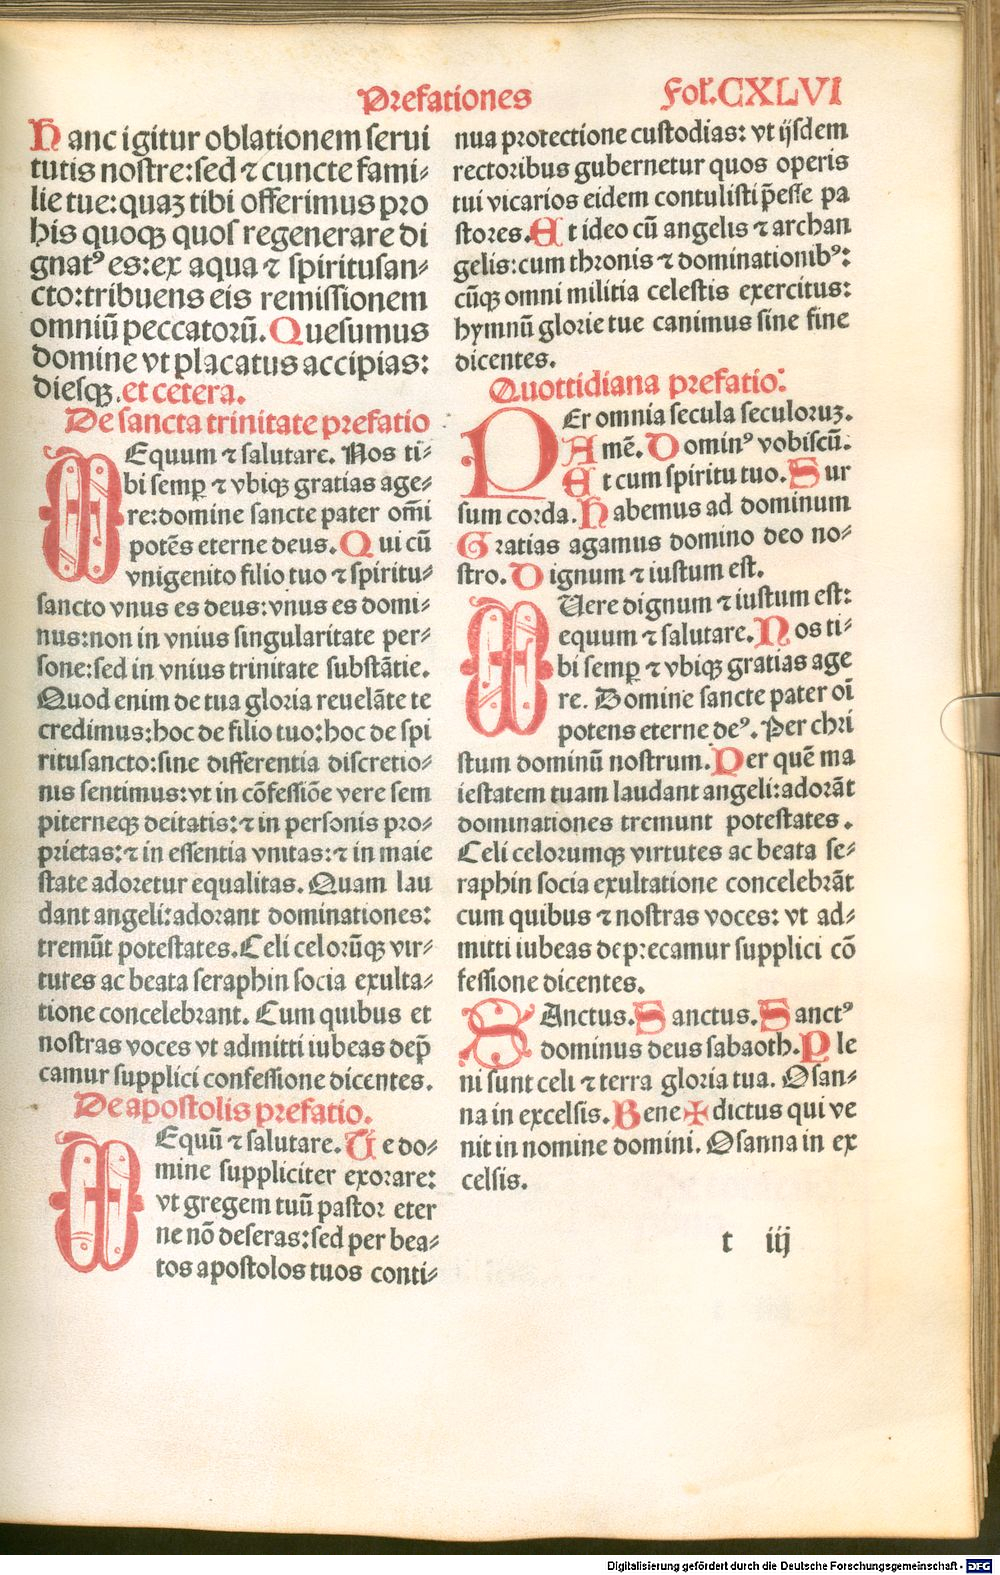 Prefationes
Fol'.CXLVI
Hanc igitur oblationem serui
tutis nostre:sed ⁊ cuncte fami⸗
lie tue:quaꝫ tibi offerimus pro
his quoqꝫ quos regenerare di
gnatꝰ es:ex aqua ⁊ spiritusan⸗
cto:tribuens eis remissionem
omniū peccatorū.Quesumus
domine vt placatus accipias:
diesqꝫ.et cetera.
De sancta trinitate prefatio
Equum ⁊ salutare. Nos ti⸗
bi semꝑ ⁊ vbiqꝫ gratias age⸗
re:domine sancte pater om̄i
potēs eterne deus.Qui cū
vnigenito filio tuo ⁊ spiritu⸗
sancto vnus es deus:vnus es domi⸗
nus:non in vnius singularitate per⸗
sone:sed in vnius trinitate substātie.
Quod enim de tua gloria reuelāte te
credimus:hoc de filio tuo:hoc de spi
ritusancto:sine differentia discretio⸗
nis sentimus:vt in cōfessiōe vere sem
piterneqꝫ deitatis:⁊ in personis pro⸗
prietas:⁊ in essentia vnitas:⁊ in maie
state adoretur equalitas.Quam lau
dant angeli:adorant dominationes:
tremūt potestates.Celi celorūqꝫ vir⸗
tutes ac beata seraphin socia exulta⸗
tione concelebrant. Cum quibus et
nostras voces vt admitti iubeas dep̄
camur supplici confessione dicentes.
De apostolis prefatio.
Equū ⁊ salutare.Te do⸗
mine suppliciter exorare:
vt gregem tuū pastor eter
ne nō deseras:sed per bea⸗
tos apostolos tuos conti⸗
nua protectione custodias: vt ijsdem
rectoribus gubernetur quos operis
tui vicarios eidem contulisti p̄esse pa
stores.Et ideo cū angelis ⁊ archan
gelis:cum thronis ⁊ dominationibꝰ:
cūqꝫ omni militia celestis exercitus:
hymnū glorie tue canimus sine fine
dicentes.
Quottidiana prefatio:
PEr omnia secula seculoruꝫ.
Amē.Dominꝰ vobiscū.
Et cum spiritu tuo.Sur
sum corda.Habemus ad dominum
Gratias agamus domino deo no⸗
stro.Dignum ⁊ iustum est.
Uere dignum ⁊ iustum est:
equum ⁊ salutare.Nos ti⸗
bi semꝑ ⁊ vbiqꝫ gratias age
re. Domine sancte pater oī
potens eterne deꝰ.Per chri
stum dominū nostrum.Per quē ma
iestatem tuam laudant angeli:adorāt
dominationes tremunt potestates.
Celi celorumqꝫ virtutes ac beata se⸗
raphin socia exultatione concelebrāt
cum quibus ⁊ nostras voces: vt ad⸗
mitti iubeas deprecamur supplici cō
fessione dicentes.
SAnctus.Sanctus.Sanctꝰ
dominus deus sabaoth.Ple
ni sunt celi ⁊ terra gloria tua. Osan⸗
na in excelsis.Bene✠dictus qui ve
nit in nomine domini.Osanna in ex
celsis.
t iij
Digitalisierung gefördert durch die Deutsche Forschungsgemeinschaft - DFG